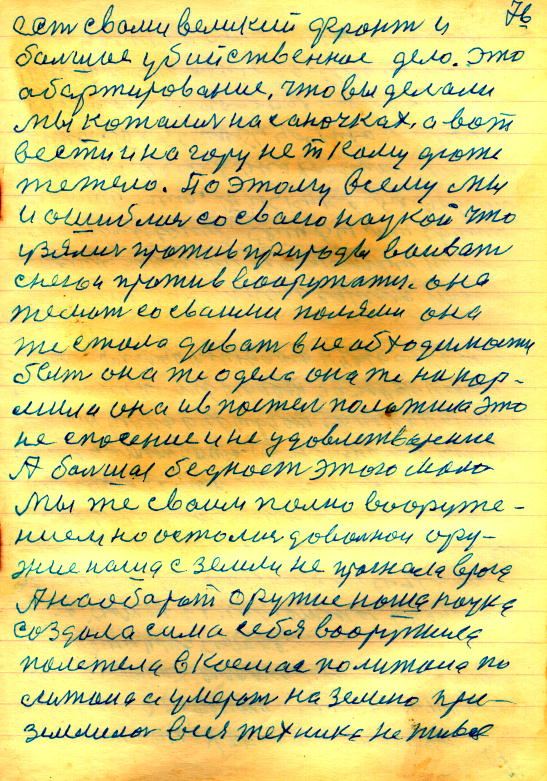 76
ест своми великий фронт и
болшое убийственное дело. Это
абартирование, что вы делали
мы котались на саночках, а вот
вести и на гору нет кому дроже
тежело. Поэтому всему мы
и ошиблись со своею наукой что
взялись против природы воиват
с ней и против вооружати. она
же мат со своими полями она
же стала давать в необходимости
быт она же одела она же накор-
мила она и в постел положила Это
не спосение и не удовлетворение
А болшая бедност этого мало
мы же своим полно вооруже-
нием но остолись доволной ору-
жие наша с земли не прогнала врога
А наоборот оружие ноша наука
создала сама себя вооружила
полетела в Космас политала по
литала и умерат на землю при-
землилас вся техника не живое